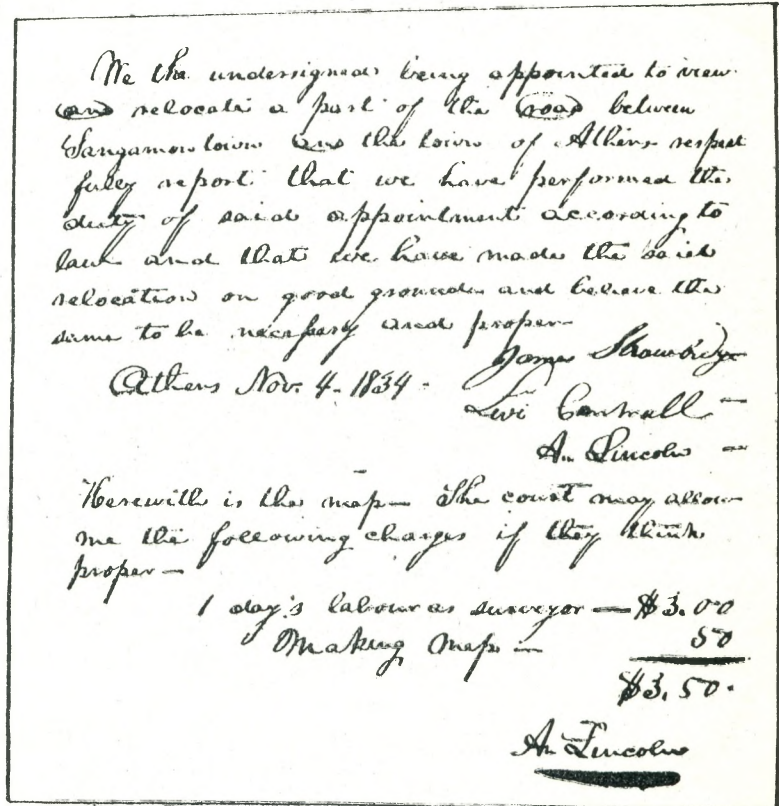 We the undersigned being appointed to view
and relocate a part of the road between
Sangamon town and the town of Athens respect
fully report that we have performed the
duty of said appointment according to
law and that we have made the said
relocation on good ground and believe the
same to be necessary and proper—
James Strowbridge
Athens Nov. 4. 1834.
Levi Cantrall—
A. Lincoln—
Herewith is the map— The court may allow
me the following charges if they think
proper—
1 day's labour as surveyor—$3.00
Making map— 50
$3.50.
A. Lincoln